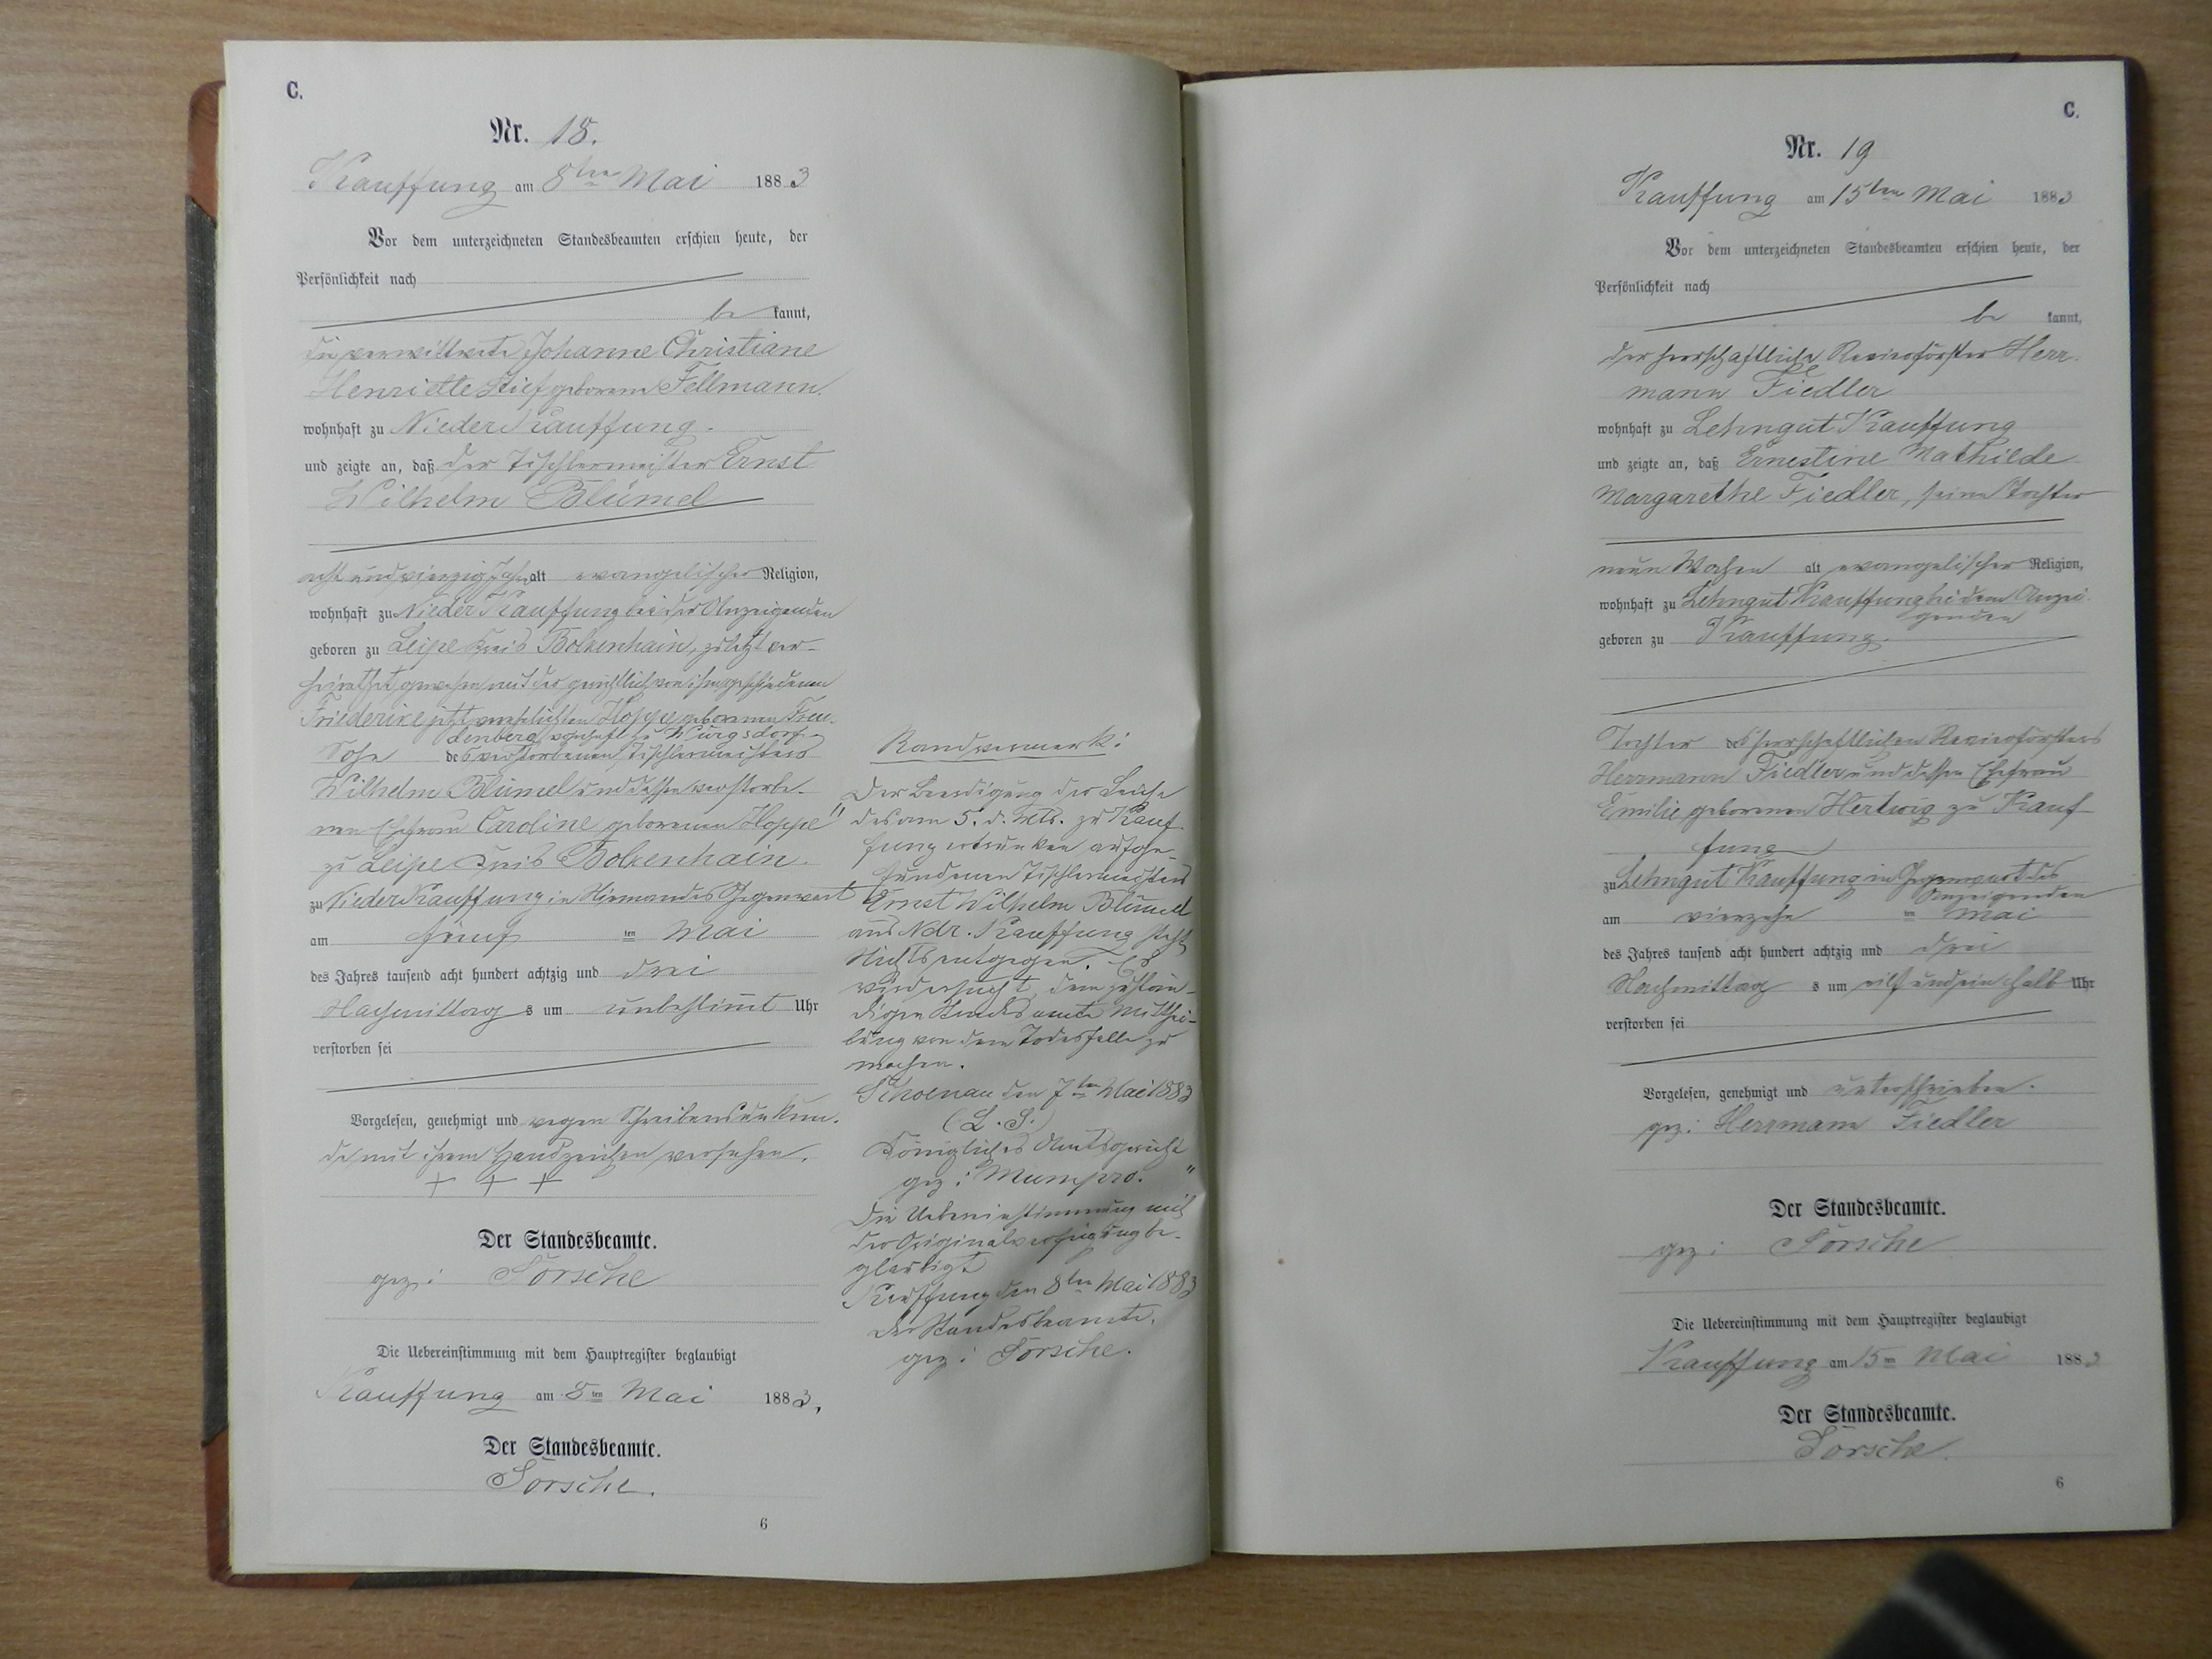 C.
Nr. 18.
Kauffung am 8ten Mai 1883
Vor dem unterzeichneten Standesbeamten erschien heute, der
Persönlichkeit nach
be kannt,
die verwittwete Johanne Christiane
Henriette Stief geborene Fellmann
wohnhaft zu Nieder Kauffung.
und zeigte an, daß der Tischlermeister Ernst
Wilhelm Blümel
acht und vierzig Jahr alt evangelischer Religion,
wohnhaft zu Nieder Kauffung bei der Anzeigenden
geboren zu Leipe Kreis Bolkenhain, zuletzt ver-
heirathet gewesen mit der gerichtlich von ihm geschiedenen
Friederike jetzt verehelichten Hoppe geborenen Freu-
denberg wohnhaft zu Würgsdorf.
Sohn des verstorbenen Tischlermeisters
Wilhelm Blümel und dessen verstorbe-
nen Ehefrau Caroline geborenen Hoppe
zu Leipe Kreis Bolkenhain.
zu Nieder Kauffung in Niemandes Gegenwart
am fünf ten Mai
des Jahres tausend acht hundert achtzig und drei
Nachmittag s um unbestimmt Uhr
verstorben sei
Vorgelesen, genehmigt und wegen Schreibensunkun-
de mit ihrem Handzeichen versehen.
+ + +
Der Standesbeamte.
gez: Sörsche
Die Uebereinstimmung mit dem Hauptregister beglaubigt
Kauffung am 8ten Mai 1883.
Der Standesbeamte.
Sörsche.
6
Randvermerk:
"Der Beerdigung der Leiche
des am 5. d. Mts. zu Kauf-
fung ertrunken aufge-
fundenen Tischlermeisters
Ernst Wilhelm Blümel
aus Ndr. Kauffung steht
Nichts entgegen. Es
wird ersucht, dem zustän-
digen Standesamte Mitthei-
lung von dem Todesfalle zu
machen.
Schoenau den 7ten Mai 1883
(L. S.)
Königliches Amtsgericht
gez: Mumpro."
Die Uebereinstimmung mit
der Originalverfügung be-
glaubigt
Kauffung den 8ten Mai 1883
Der Standesbeamte.
gez: Sörsche.
C.
Nr. 19
Kauffung am 15ten Mai 1883
Vor dem unterzeichneten Standesbeamten erschien heute, der
Persönlichkeit nach
be kannt,
der herrschaftliche Revierförster Herr-
mann Fiedler
wohnhaft zu Lehngut Kauffung
und zeigte an, daß Ernestine Mathilde
Margarethe Fiedler, seine Tochter
neun Wochen alt evangelischer Religion,
wohnhaft zu Lehngut Kauffung bei dem Anzei-
genden
geboren zu Kauffung.
Tochter des herrschaftlichen Revierförsters
Herrmann Fiedler und dessen Ehefrau
Emilie geborenen Hertwig zu Kauf-
fung
zu Lehngut Kauffung in Gegenwart des
Anzeigenden
am vierzehn ten Mai
des Jahres tausend acht hundert achtzig und drei
Nachmittag s um elf und ein halb Uhr
verstorben sei
Vorgelesen, genehmigt und unterschrieben.
gez: Herrmann Fiedler
Der Standesbeamte.
gez: Sörsche
Die Uebereinstimmung mit dem Hauptregister beglaubigt
Kauffung am 15ten Mai 1883
Der Standesbeamte.
Sörsche.
6